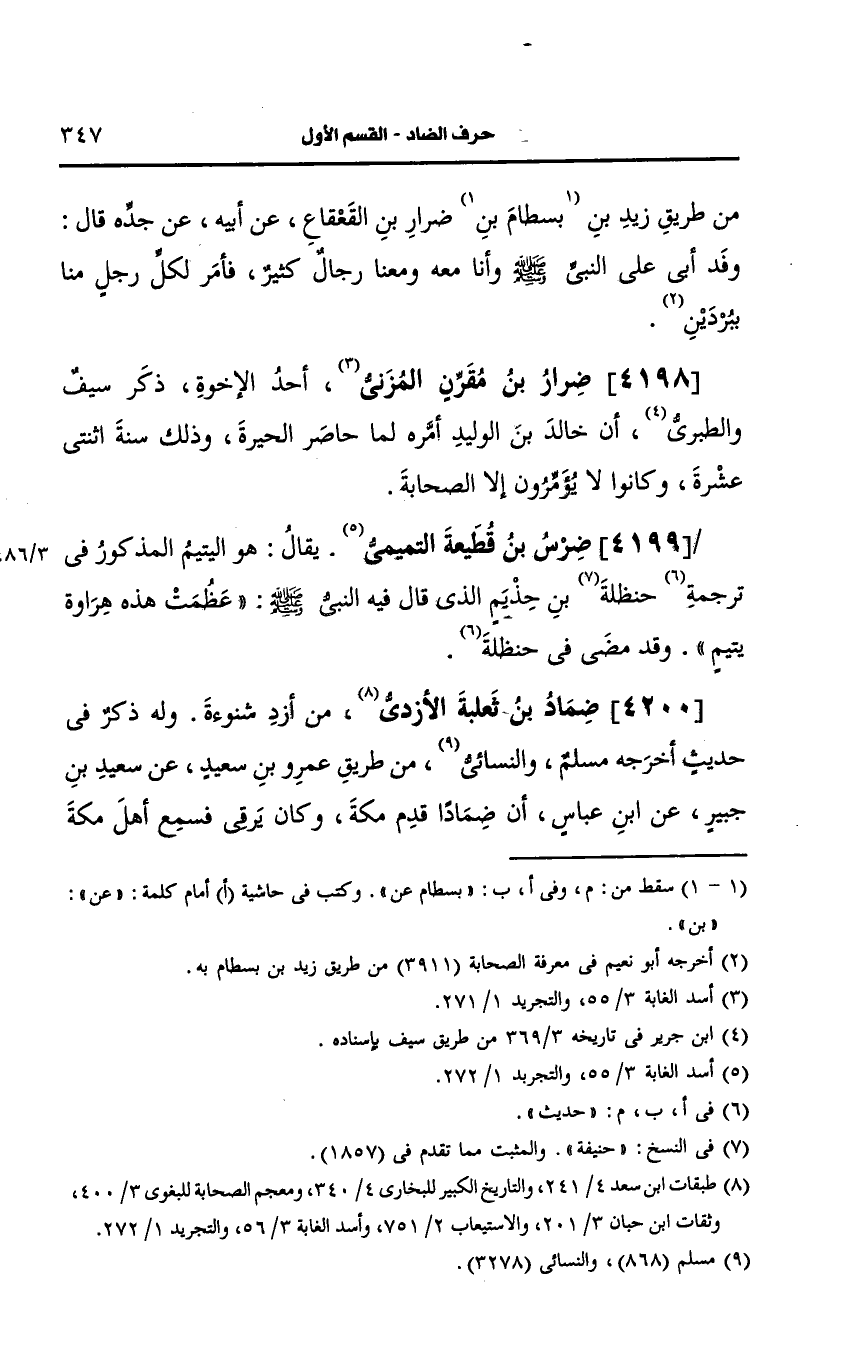 حرف الضاد - القسم الأول ٣٤٧
من طريقِ زيدِ بنِ (١بسطامَ بنِ١) ضرارِ بنِ القَعْقاعِ ، عن أبيه ، عن جدِّه قال :
وفَد أبى على النبىِّ ﷺ وأنا معه ومعنا رجالٌ كثيرٌ ، فأمَر لكلِّ رجلٍ منا
ببُرْدَيْنِ(٢) .
[٤١٩٨] ضِرارُ بنُ مُقَرِّنٍ المُزَنىُّ(٣) ، أحدُ الإخوةِ ، ذكَر سيفٌ
والطبرىُّ(٤) ، أن خالدَ بنَ الوليدِ أمَّره لما حاصَر الحيرةَ ، وذلك سنةَ اثنتى
عشْرةَ ، وكانوا لا يُؤَمِّرُون إلا الصحابةَ .
/[٤١٩٩] ضِرْسُ بنُ قُطَيعةَ التميمىُّ(٥) . يقالُ : هو اليتيمُ المذكورُ فى ٨٦/٣
ترجمةِ(٦) حنظلةَ(٧) بنِ حِذْيَمٍ الذى قال فيه النبىُّ ﷺ : « عَظُمَتْ هذه هِرَاوة
يتيمٍ » . وقد مضَى فى حنظلةَ(٦) .
[٤٢٠٠] ضِمَادُ بنُ ثَعلبةَ الأزدىُّ(٨) ، من أزدِ شنوءةَ . وله ذكرٌ فى
حديثٍ أخرَجه مسلمٌ ، والنسائىُّ(٩) ، من طريقِ عمرِو بنِ سعيدٍ ، عن سعيدِ بنِ
جبيرٍ ، عن ابنِ عباسٍ ، أن ضِمَادًا قدِم مكةَ ، وكان يَرقِى فسمِع أهلَ مكةَ
(١ - ١) سقط من : م ، وفى أ ، ب : « بسطام عن » . وكتب فى حاشية (أ) أمام كلمة : « عن » :
« بن » .
(٢) أخرجه أبو نعيم فى معرفة الصحابة (٣٩١١) من طريق زيد بن بسطام به .
(٣) أسد الغابة ٣/ ٥٥، والتجريد ١/ ٢٧١.
(٤) ابن جرير فى تاريخه ٣٦٩/٣ من طريق سيف بإسناده .
(٥) أسد الغابة ٣/ ٥٥، والتجريد ١/ ٢٧٢.
(٦) فى أ ، ب ، م : « حديث » .
(٧) فى النسخ : « حنيفة » . والمثبت مما تقدم فى (١٨٥٧) .
(٨) طبقات ابن سعد ٤/ ٢٤١، والتاريخ الكبير للبخارى ٤/ ٣٤٠، ومعجم الصحابة للبغوى ٣/ ٤٠٠،
وثقات ابن حبان ٣/ ٢٠١، والاستيعاب ٢/ ٧٥١، وأسد الغابة ٣/ ٥٦، والتجريد ١/ ٢٧٢.
(٩) مسلم (٨٦٨) ، والنسائى (٣٢٧٨) .